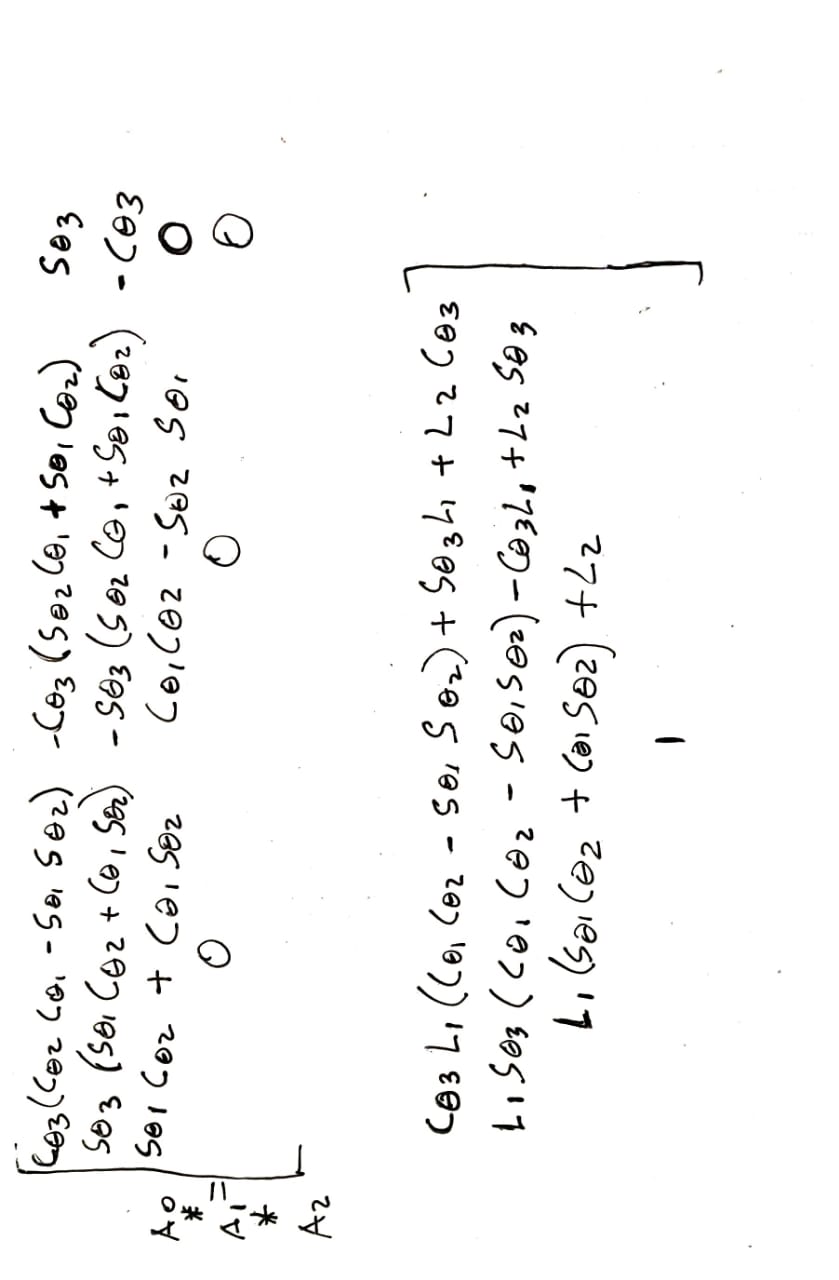 Cθ3(Cθ2 Cθ1 - Sθ1 Sθ2) -Cθ3 (Sθ2 Cθ1 + Sθ1 Cθ2) Sθ3
Sθ3 (Sθ1 Cθ2 + Cθ1 Sθ2) - Sθ3 (Sθ2 Cθ1 + Sθ1 Cθ2) - Cθ3
Sθ1 Cθ2 + Cθ1 Sθ2 Cθ1 Cθ2 - Sθ2 Sθ1 0
0 0 0
A0
*
A1 =
*
A2
Cθ3 L1 (Cθ1 Cθ2 - Sθ1 Sθ2) + Sθ3 L1 + L2 Cθ3
L1 Sθ3 (Cθ1 Cθ2 - Sθ1 Sθ2) - Cθ3 L1 + L2 Sθ3
L1 (Sθ1 Cθ2 + Cθ1 Sθ2) + L2
1